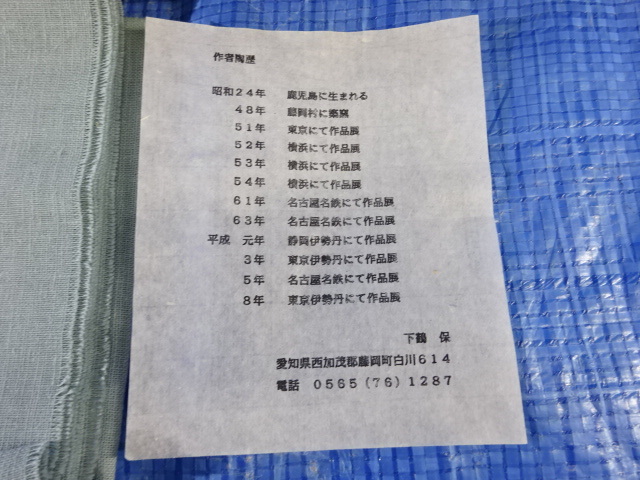 作者陶歴
昭和24年 鹿児島に生まれる
48年 藤岡村に築窯
51年 東京にて作品展
52年 横浜にて作品展
53年 横浜にて作品展
54年 横浜にて作品展
61年 名古屋名鉄にて作品展
63年 名古屋名鉄にて作品展
平成 元年 静岡伊勢丹にて作品展
3年 東京伊勢丹にて作品展
5年 名古屋名鉄にて作品展
8年 東京伊勢丹にて作品展
下鶴 保
愛知県西加茂郡藤岡町白川614
電話 0565(76)1287